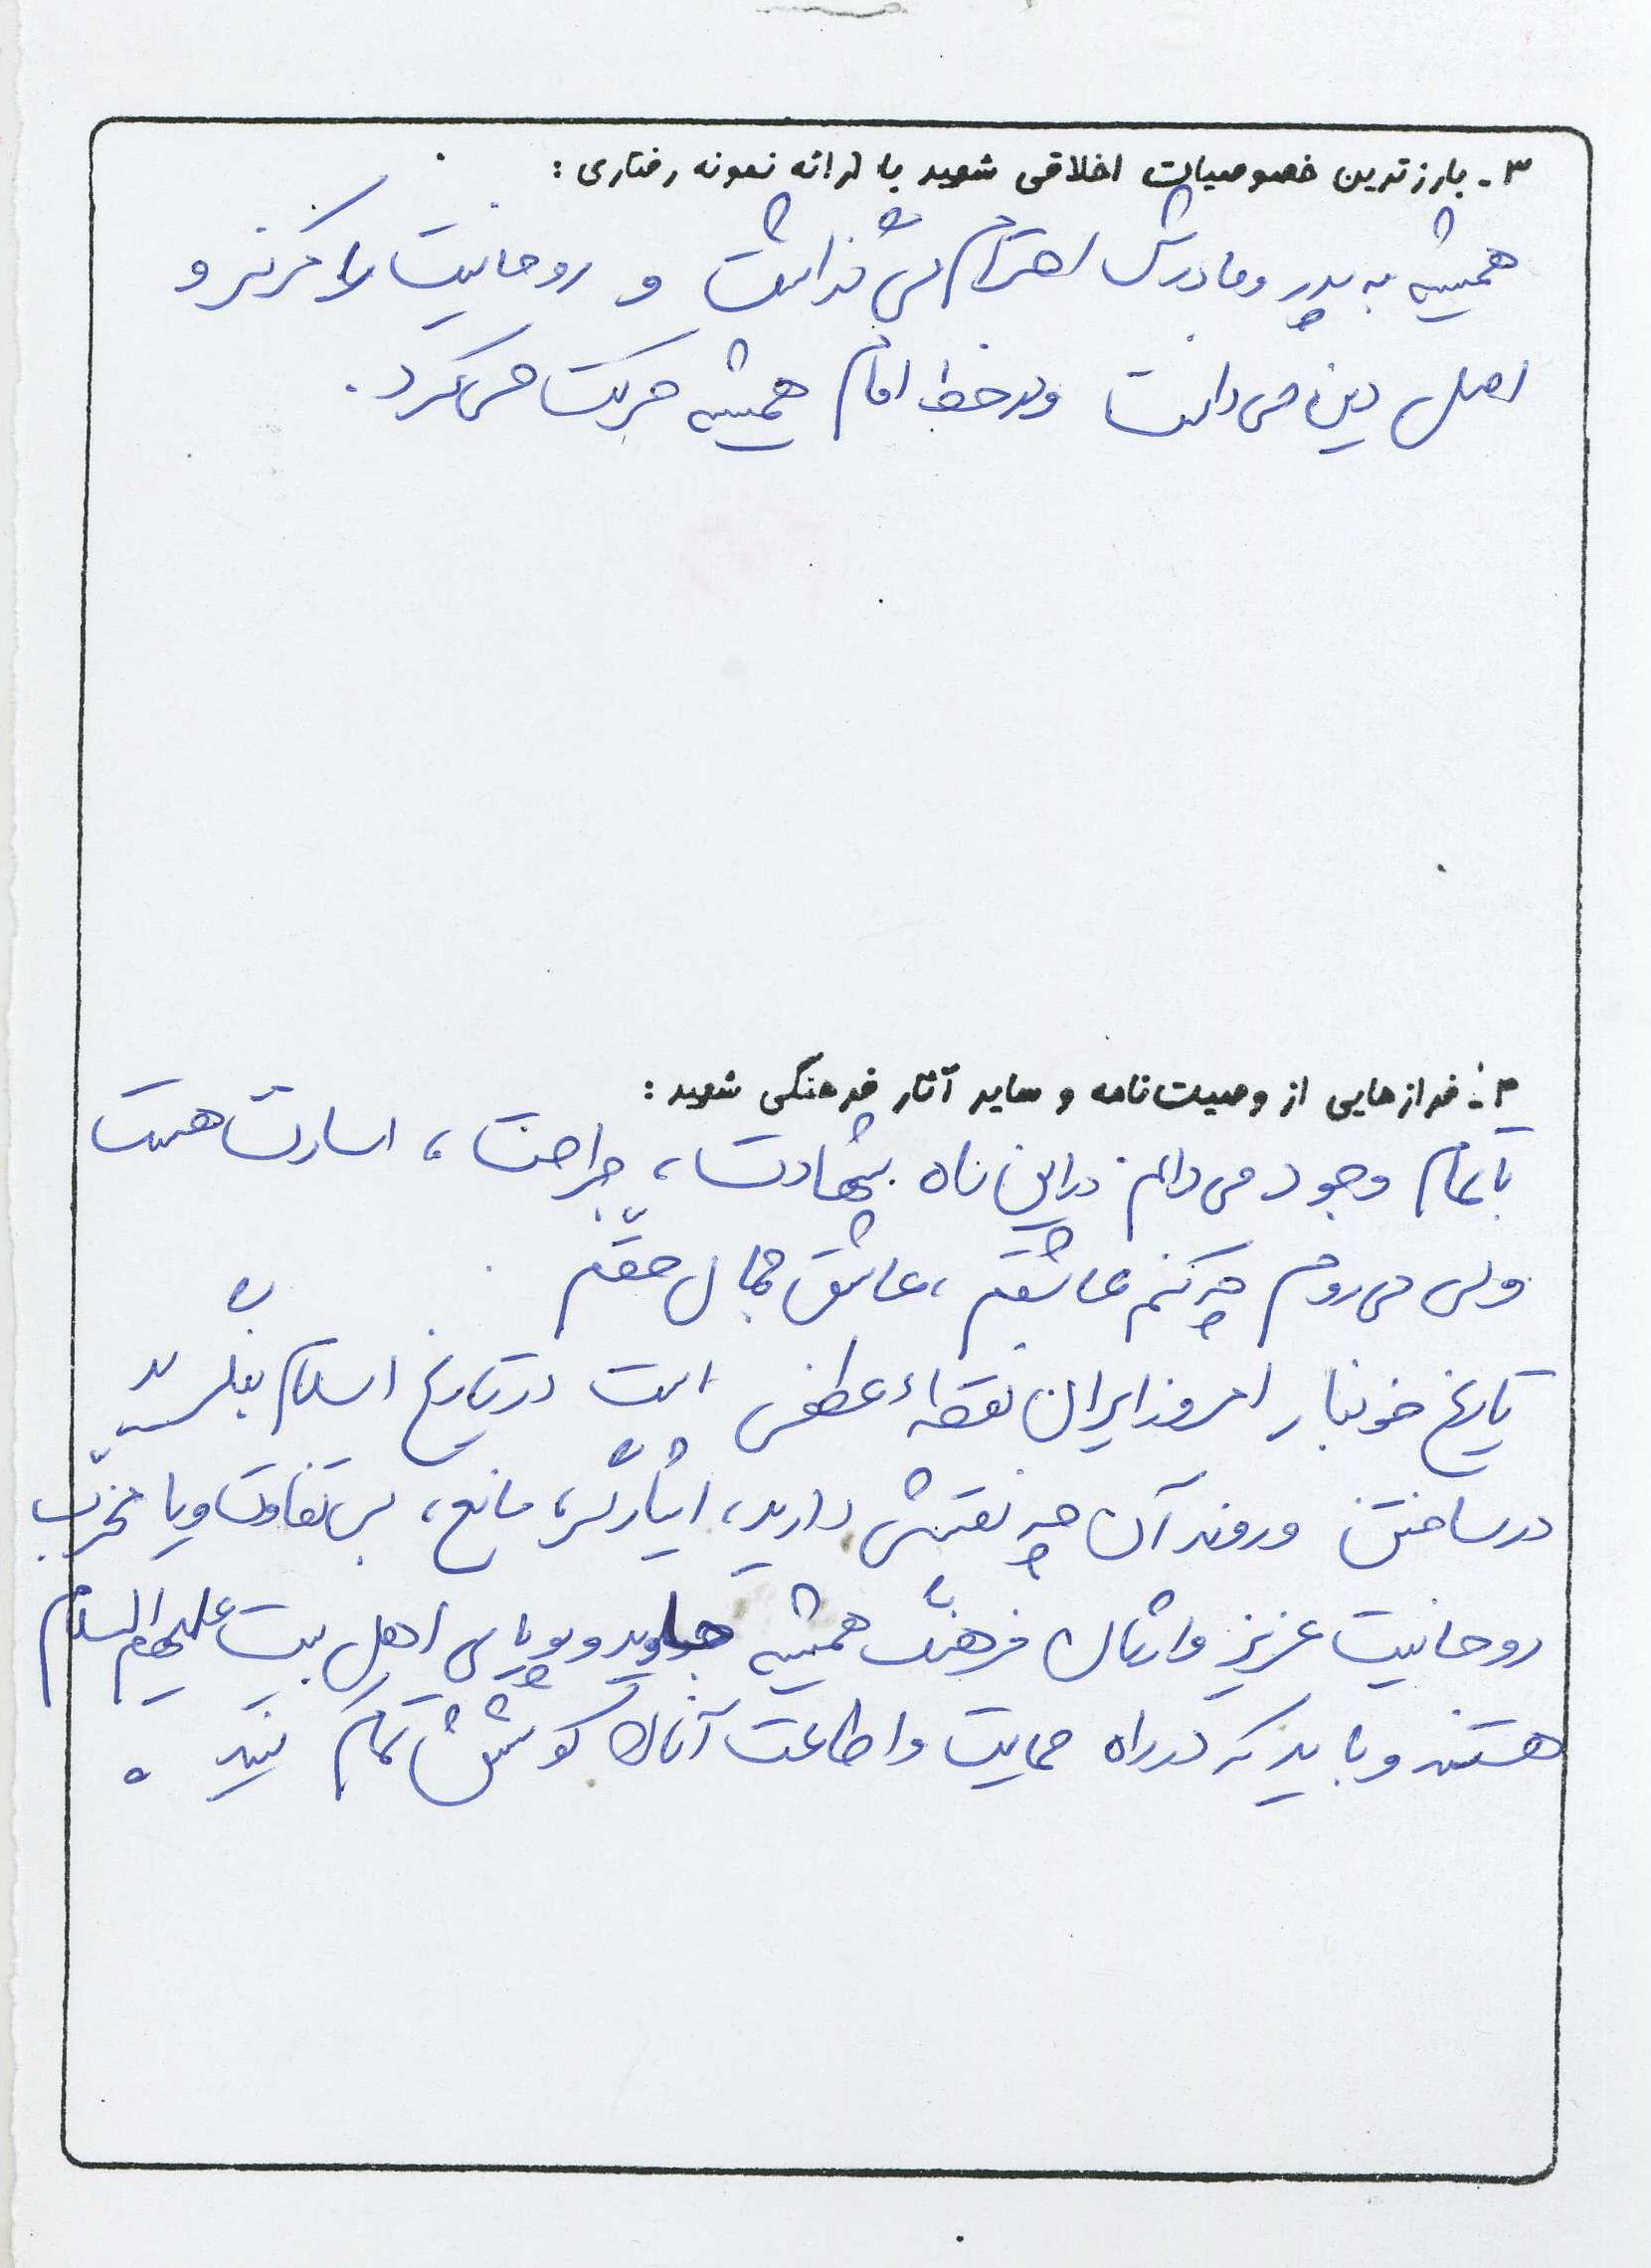 ۳- بارزترین خصوصیات اخلاقی شهید با ارائه نمونه رفتاری:
همیشه به پدر و مادرش احترام می گذاشت و روحانیت را مرکز و
اصل دین می دانست و در خط امام همیشه حرکت می کرد.
۴- فرازهایی از وصیت‌نامه و سایر آثار فرهنگی شهید:
با تمام وجود می دانم در این راه شهادت، جراحت، اسارت هست
ولی می روم چه کنم عاشقم، عاشق جمال حقم
تاریخ خونبار امروز ایران نقطه عطفی است در تاریخ اسلام بنگرید
در ساختن و روند آن چه نقشی دارید، ایثارگر، مانع، بی تفاوت و یا مخرب
روحانیت عزیز وارثان فرهنگ همیشه جاوید و پویای اهل بیت علیهم السلام
هستند و باید که در راه حمایت و اطاعت آنان کوشش تمام کنید.